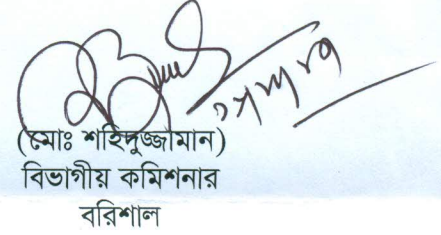 (মোঃ শহিদুজ্জামান)
বিভাগীয় কমিশনার
বরিশাল